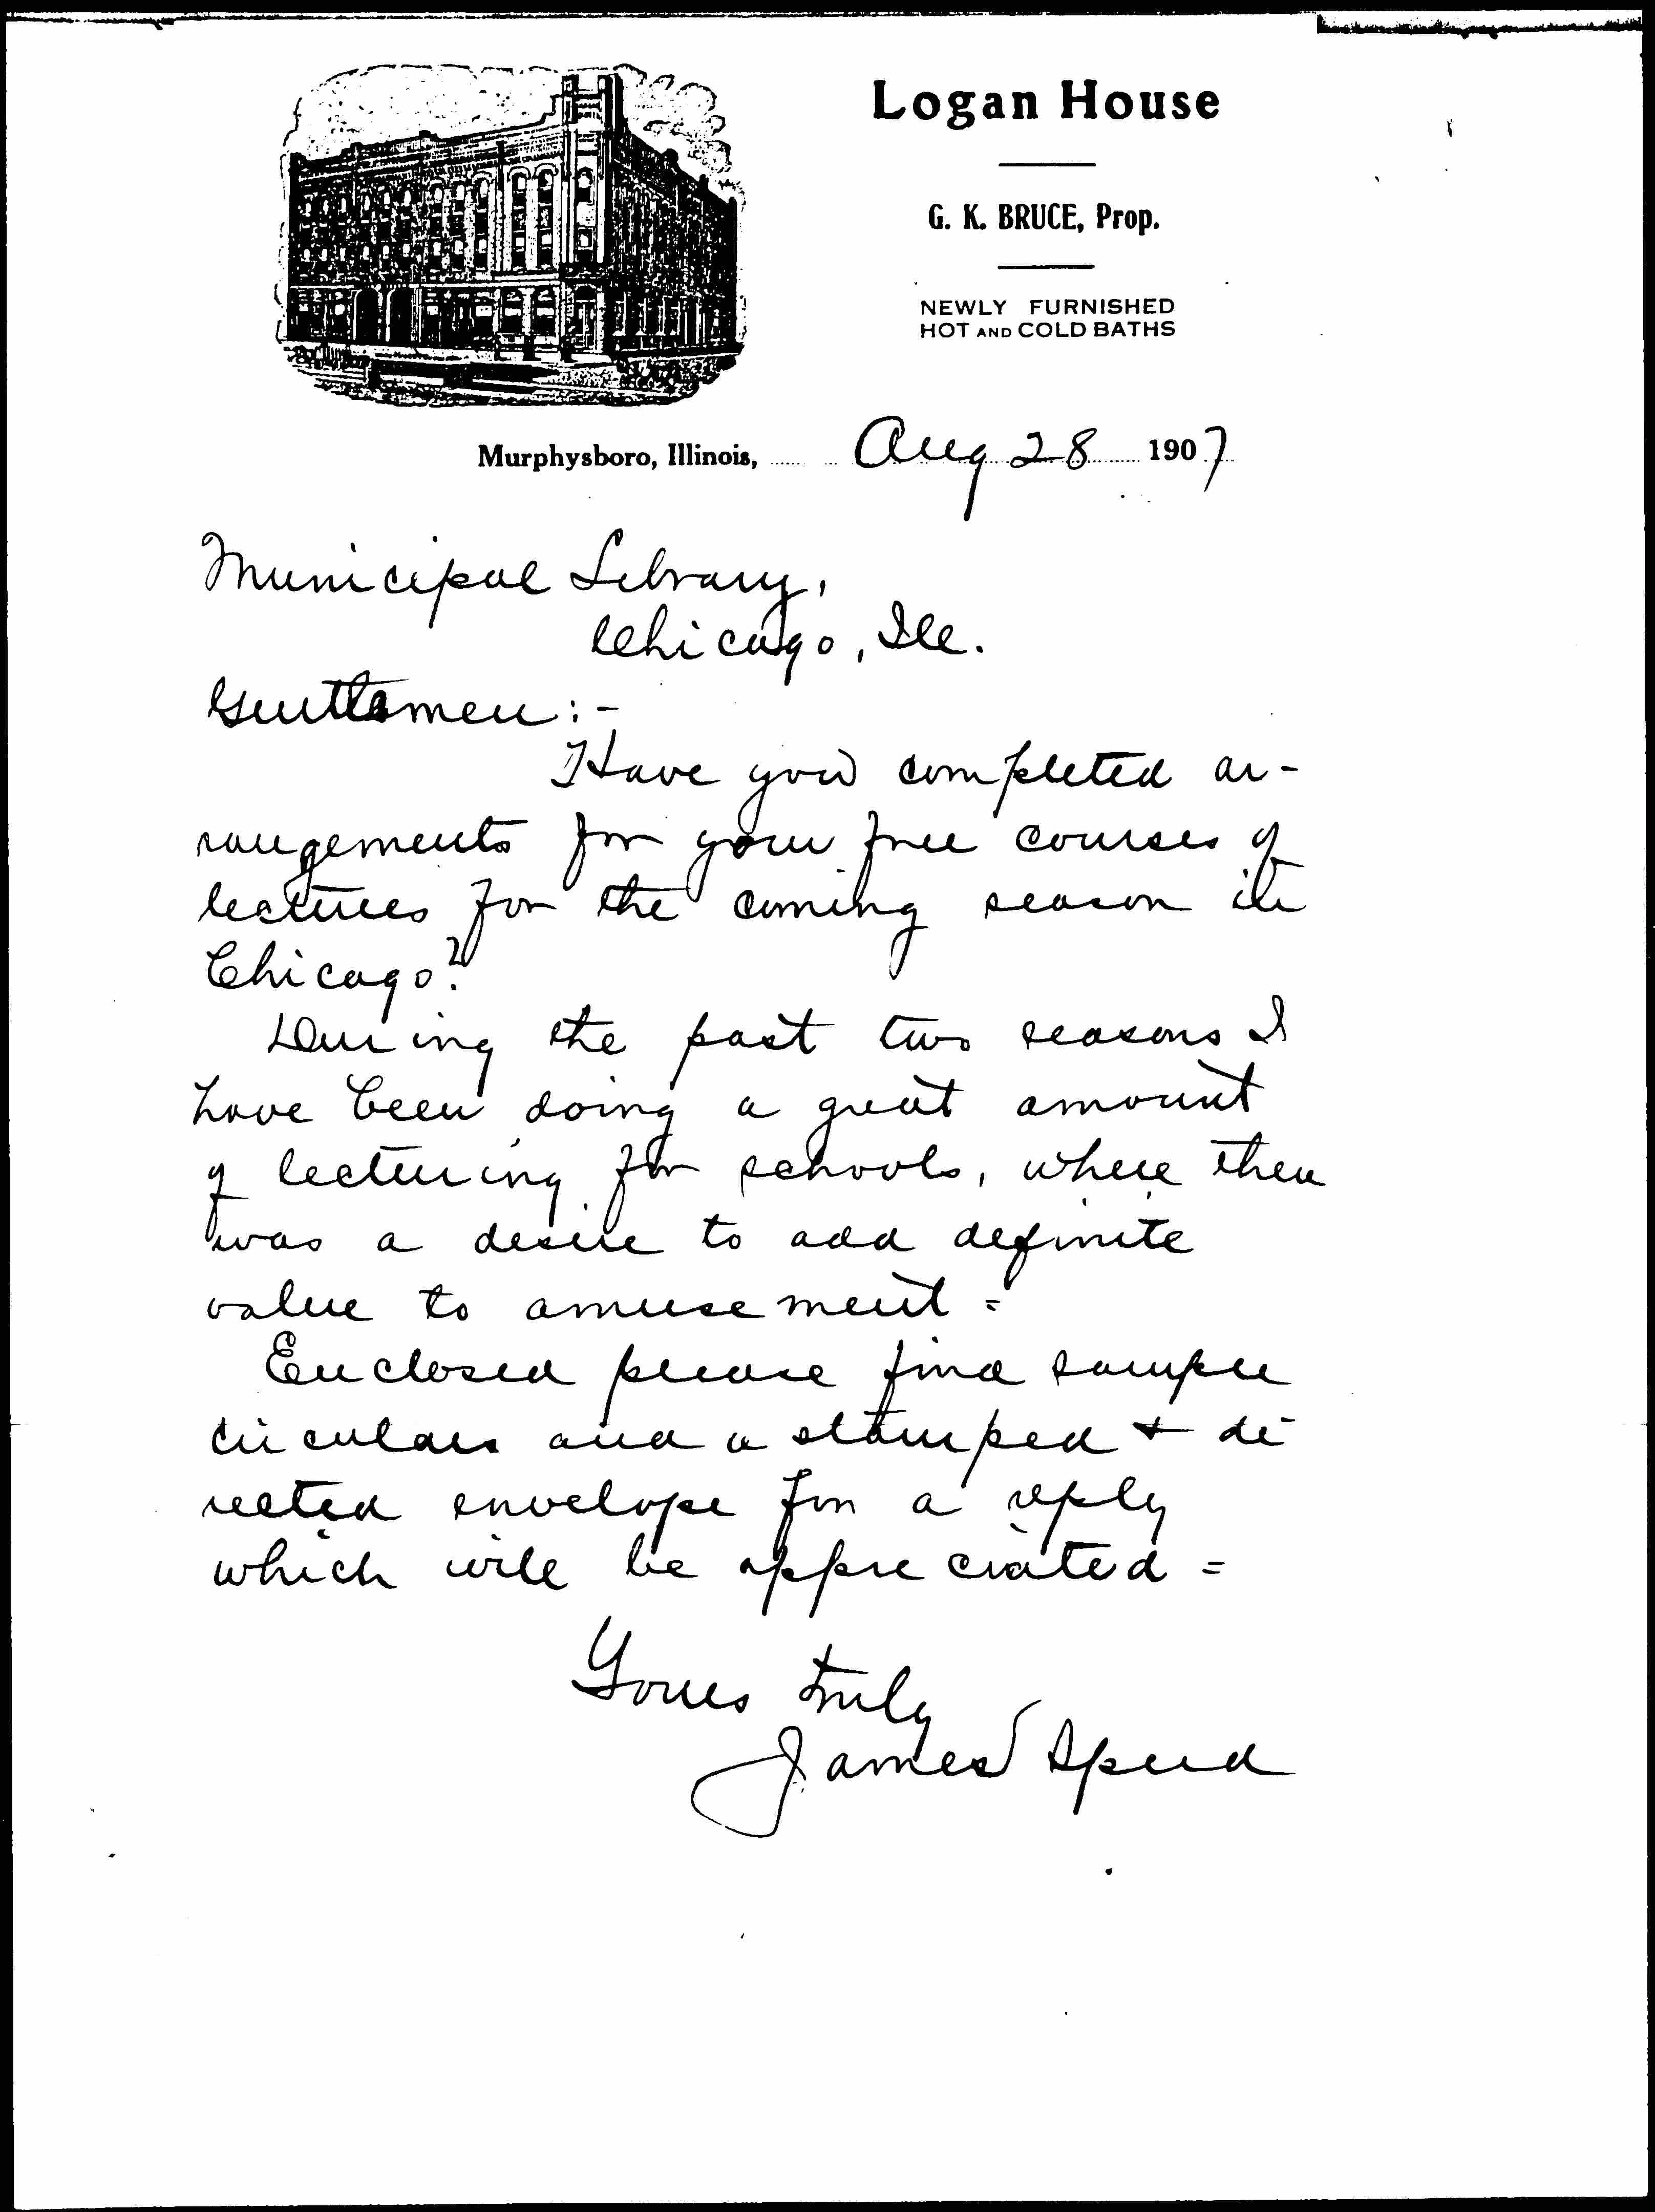 Logan House
G. K. BRUCE, Prop.
NEWLY FURNISHED
HOT AND COLD BATHS
Murphysboro, Illinois, Aug 28 1907
Municipal Library,
Chicago, Ill.
Gentlemen:-
Have you completed ar-
rangements for your free courses of
lectures for the coming season in
Chicago?
During the past two seasons I
have been doing a great amount
of lecturing for schools, where there
was a desire to add definite
value to amusement =
Enclosed please find sample
circulars and a stamped + di-
rected envelope for a reply
which will be appreciated =
Yours truly
James Speed